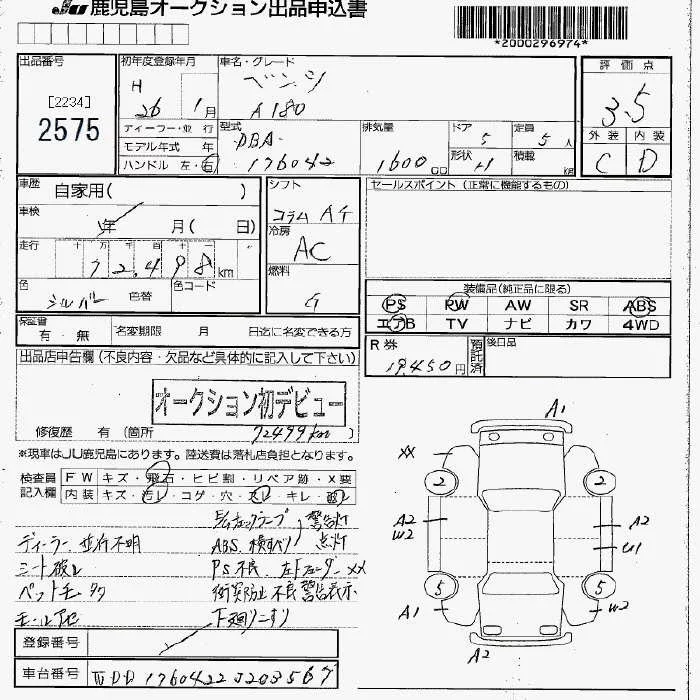 JU 鹿児島オークション出品申込書
*2000296974*
出品番号
[2234]
2575
初年度登録年月
H 26 1月
ディーラー・並 行
モデル年式 年
ハンドル 左・右
車名・グレード
ベンツ
A180
型式
DBA-
176042
排気量
1600 cc
ドア
5
定員
5人
形状
積載
評価点
3.5
外装 内装
C D
車歴
自家用( )
車検
年 月( 日)
走行 十 万 千 百 十 一
72,498 km
色
シルバー
色替
色コード
シフト
コラム AT
冷房
AC
燃料
G
セールスポイント (正常に機能するもの)
装備品(純正品に限る)
PS PW AW SR ABS
エアB TV ナビ カワ 4WD
保証書
有・無
名変期限 月 日迄に名変できる方
R券
19,450円
預託済
後日品
出品店申告欄 (不良内容・欠品など具体的に記入して下さい)
オークション初デビュー
修復歴 有 (箇所 72499km )
※現車はJU鹿児島にあります。陸送費は落札店負担となります。
検査員
記入欄
FW キズ・飛石・ヒビ割・リペア跡・X要
内装 キズ・汚レ・コゲ・穴・スレ・キレ・
警告灯
ディーラー 並行不明
ABS、横すべり 点灯
シート破レ
PS不良 左Fフェーダー XX
衝突防止 不良 警告表示
下廻りこすり
登録番号
車台番号
WDD1760422J203567
A1
XX
2
2
A2
W2
A2
U1
5
5
A1
W2
A2